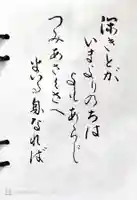 深きとが
いまよりのちは
よもあらじ
つみあさきさへ
まいる身なれば